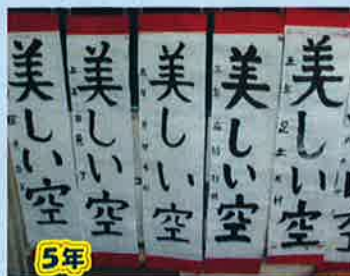 美しい空
美しい空
美しい空
美しい空
美しい空
5年